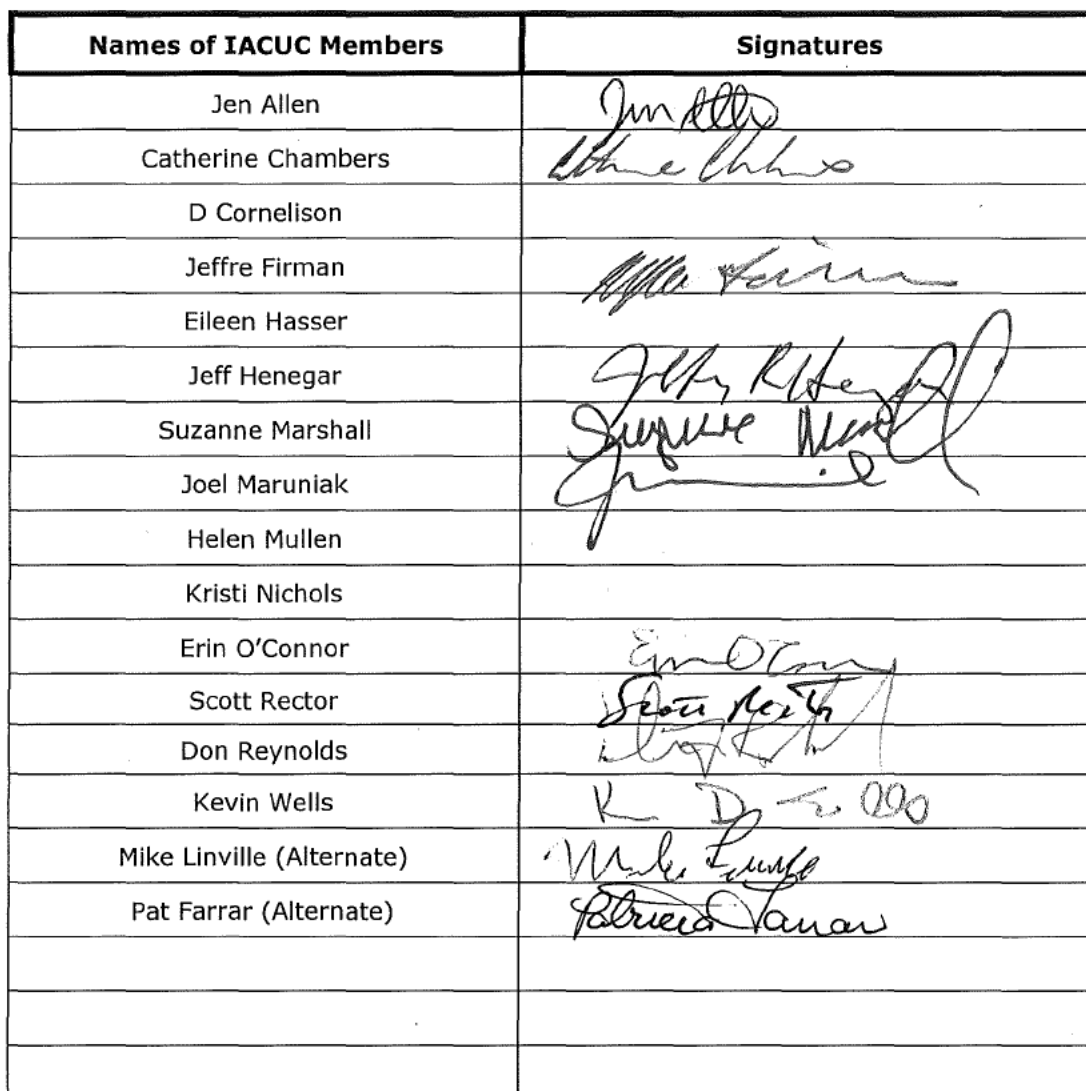 Names of IACUC Members Signatures
Jen Allen Jen Allen
Catherine Chambers
D Cornelison
Jeffre Firman
Eileen Hasser
Jeff Henegar
Suzanne Marshall Suzanne
Joel Maruniak
Helen Mullen
Kristi Nichols
Erin O'Connor Erin O'Connor
Scott Rector Scott Rector
Don Reynolds
Kevin Wells
Mike Linville (Alternate) Mike
Pat Farrar (Alternate) Patricia Farrar